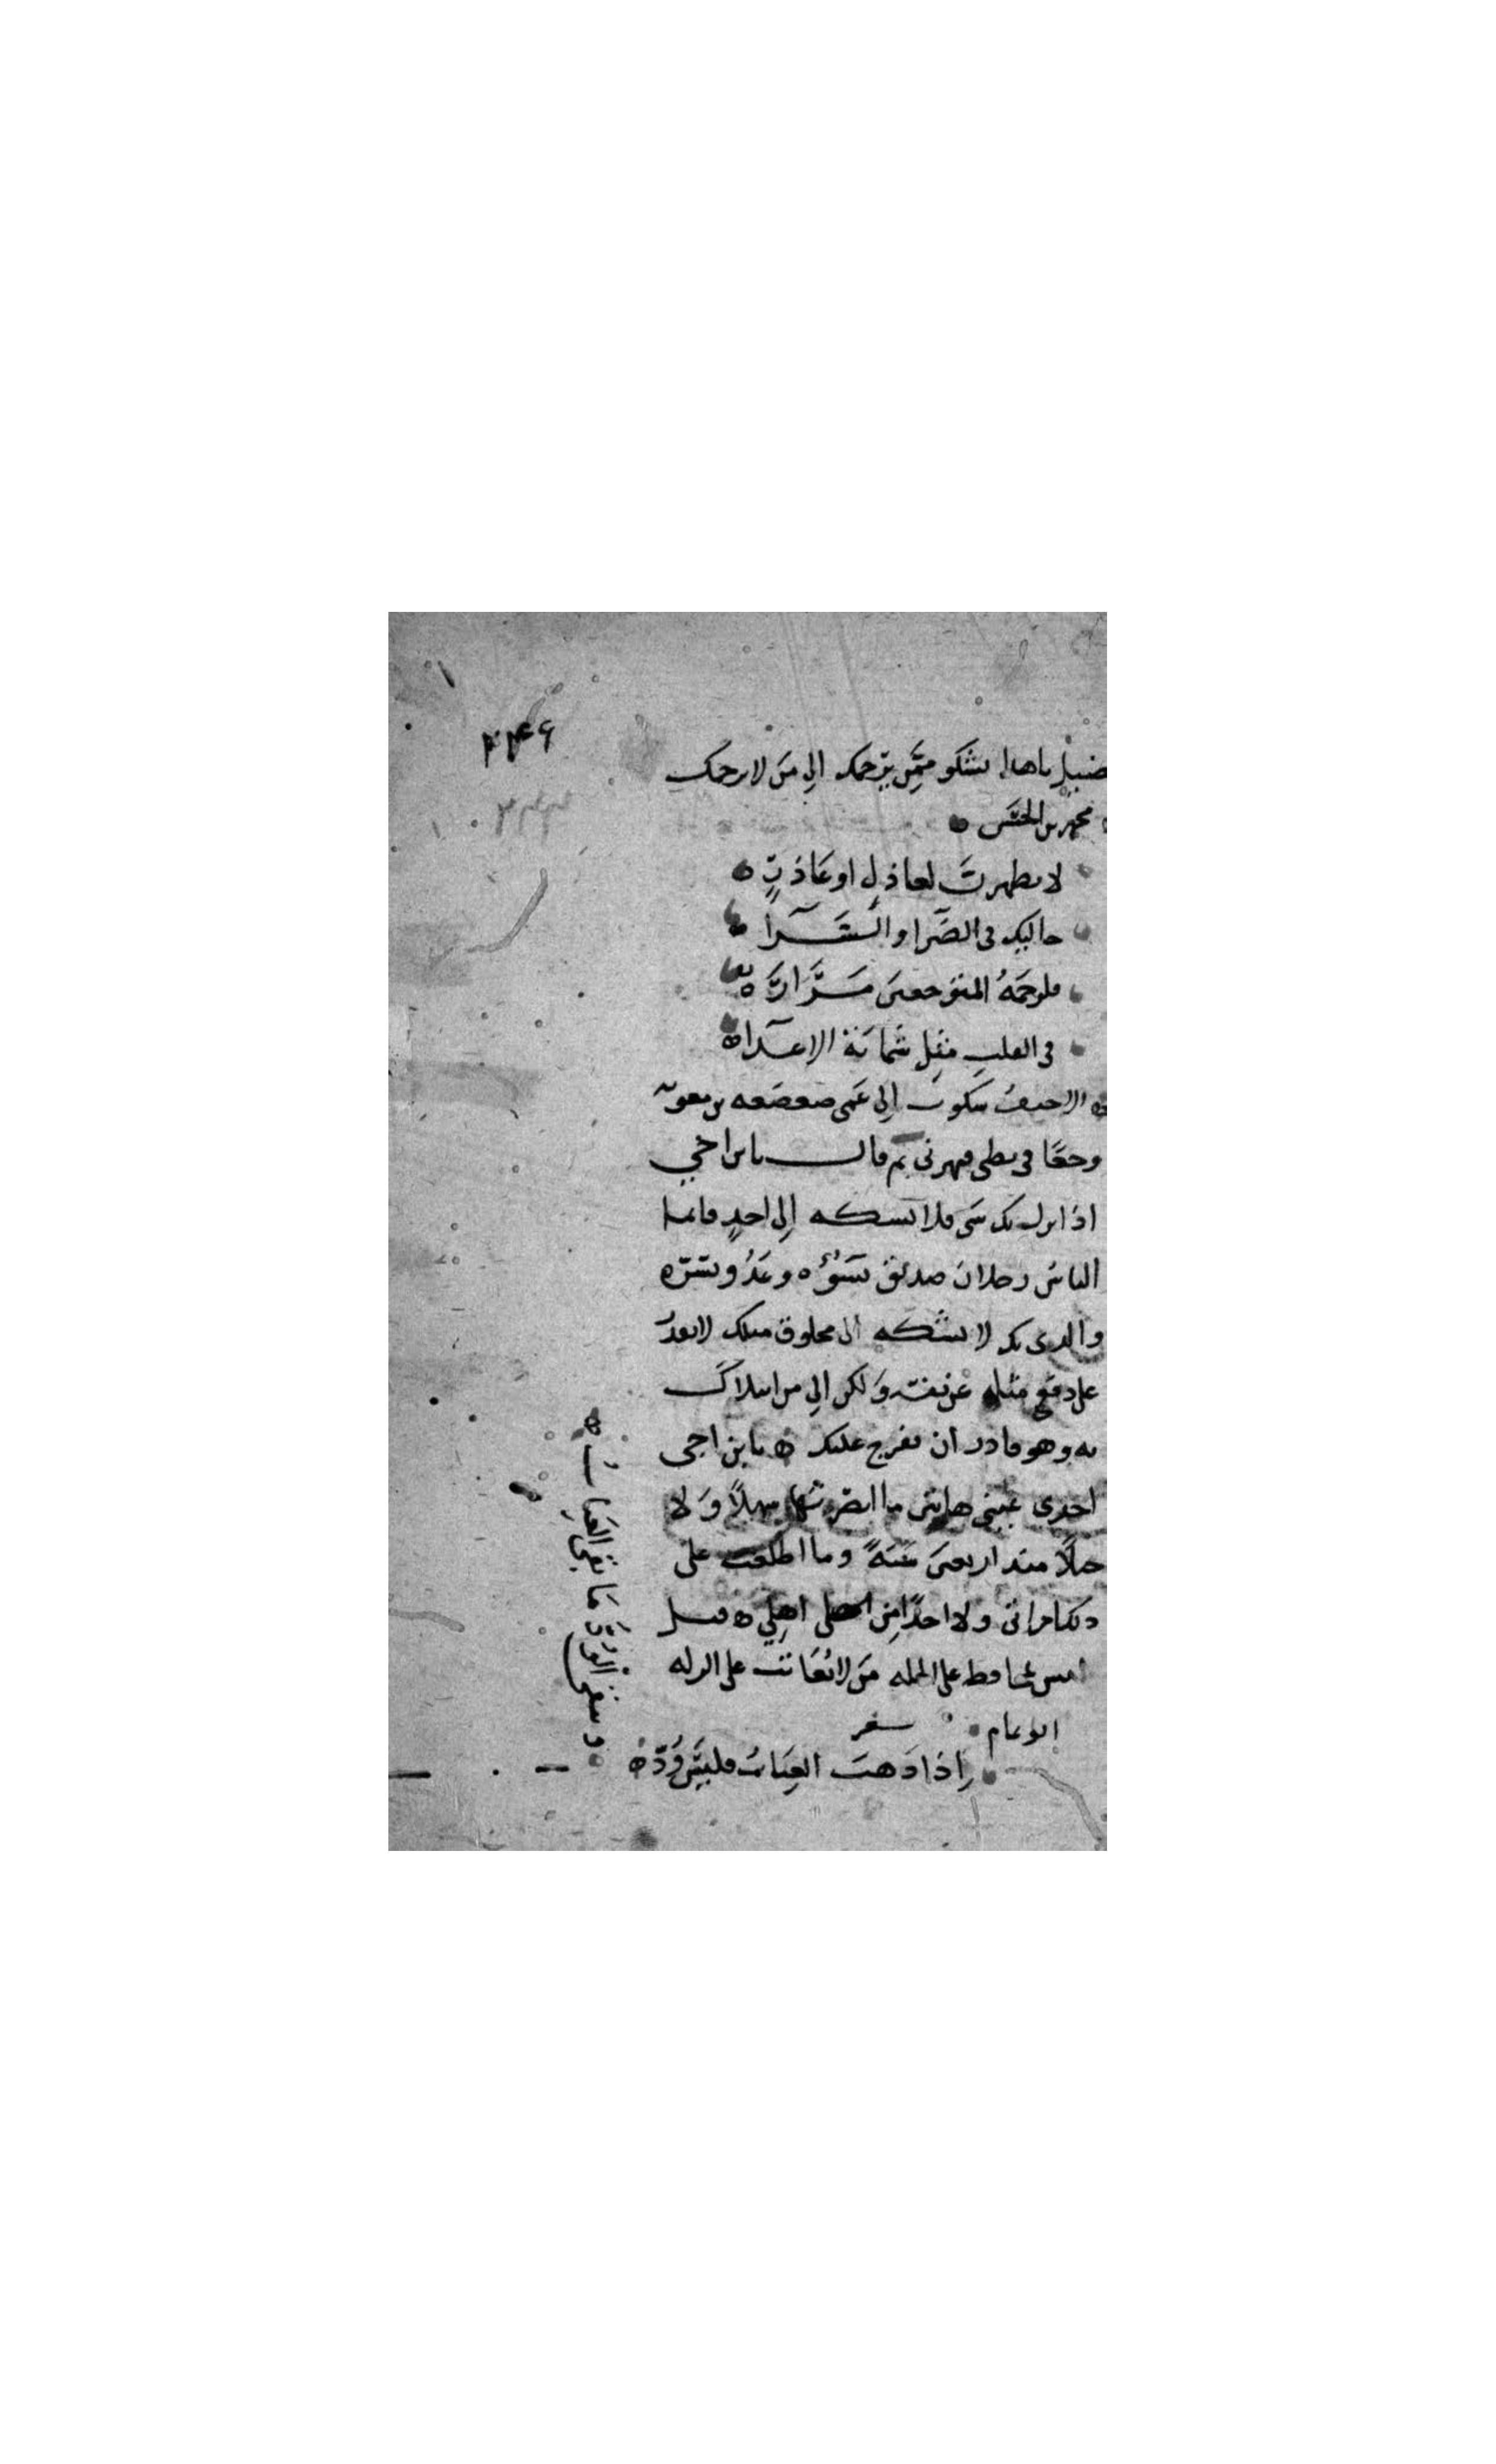 ٢٤٦
٢٤٤
يا هذا تشكو من يرحمك الى من لا يرحمك
محمد بن
لا تظهرن لعاذل او عاذر
حاليك في الضرا والسرا
فلرحمة المتوجعين مرارة
في القلب مثل شماتة الاعداء
الاحنف شكوت الى عمى صعصعه بن معوية
وجعا في بطنى فنهرنى ثم قال يا بن اخي
اذا نزل بك شى فلا تشكه الى احد فانما
الناس رجلان صديق تسوؤه وعدو تسره
والذى بك لا تشكه الى مخلوق مثلك لا يقدر
على دفع مثله عن نفسه ولكن الى من ابتلاك
به وهو قادر ان يفرج عليك يا بن اخى
احدى عينى هاتين ما ابصرت بها سهلا ولا
جبلا منذ اربعين سنة وما اطلعت على
ذلك امراتى ولا احدا من اهلي قيل
على من لا يعاتب على الزله
ابو تمام شعر
اذا ذهب العتاب فليس ود
ويبقى الود ما بقى العتاب